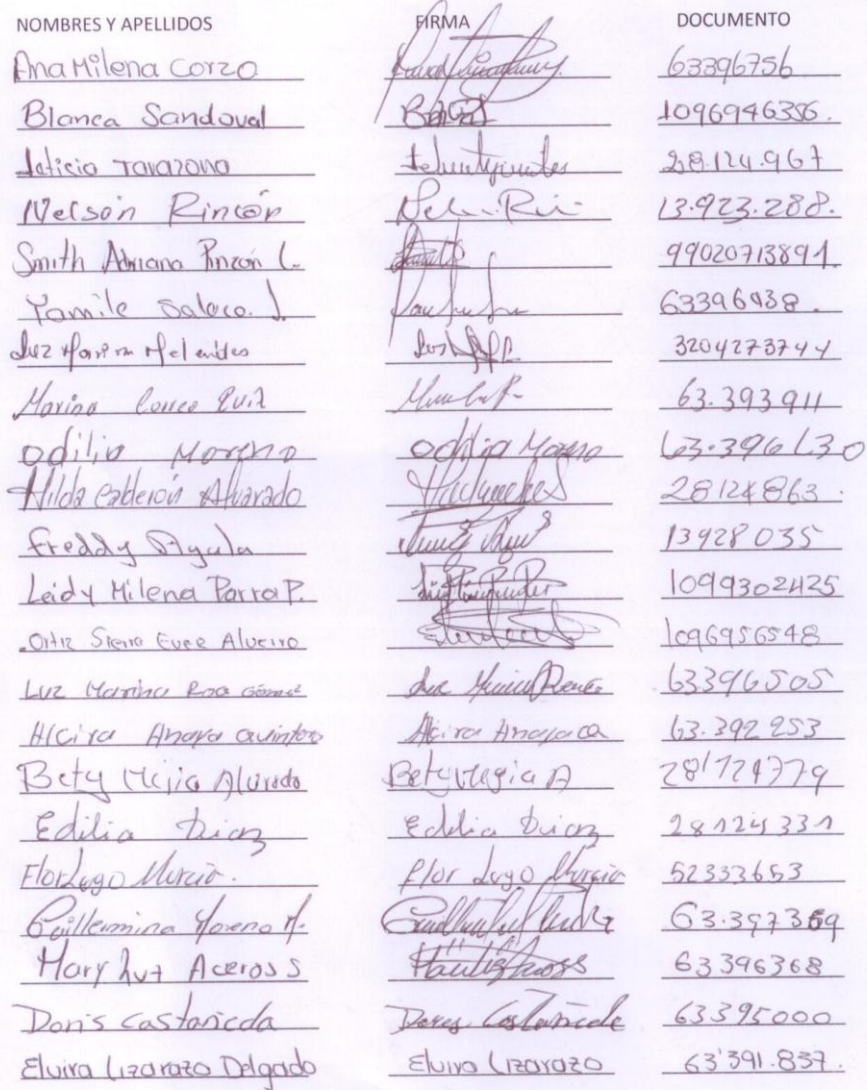 NOMBRES Y APELLIDOS FIRMA DOCUMENTO
Ana Milena Corzo 63396756
Blanca Sandoval 1096946356.
Leticia Tarazona 28.124.967
Nelson Rincón 13.923.288.
Smith Adriana Pinzón C. 99020713891.
Yamile Salaco. J. 63396938.
Luz Marina Melendes 3204273744
Marina 63.393 911
Odilia Moreno Odilia Moreno 63.396130
Hilda Calderón Alvarado 28124863.
Freddy 13928035
Leidy Milena Parra P. 1099302425
Ortiz Sierra Alveiro 1096956548
Luz Marina Gómez 63396505
Alcira Anaya Quintero Alcira Anaya Q 63.392 253
Bety Mejia Alvarado Bety Megia A
Edilia Diaz Edilia Diaz 28124331
Flor Lugo Murcia. Flor Lugo Murcia 52333653
Guillermina Moreno M. 63.397369
Mary Luz Aceros S 63396368
Doris Castañeda Doris Castañeda 63395000
Elvira Lizarazo Delgado Elvira Lizarazo 63'391.837.